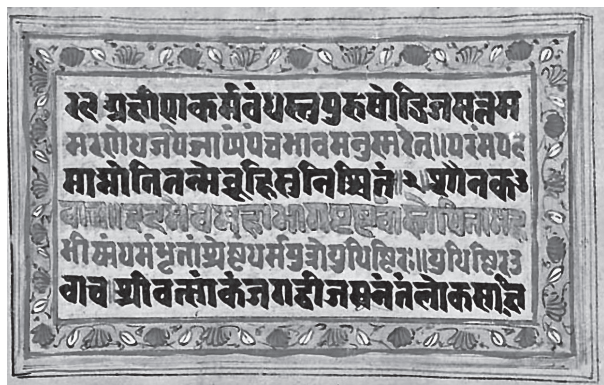 प्रक्षीणकर्मवंधस्तुपुरुषोद्विजसत्तम
मरणेयज्जपेज्जाप्यंयंचभावमनुस्मरेत्॥परंमपद
माप्नोतितन्मेब्रूहिसुनिश्चितं॥२
वाच॥इदमेवमहाभागपृष्टवांस्तेपितामहं
भीष्मंधर्मभृतांश्रेष्ठंधर्मपुत्रोयुधिष्ठिरः॥युधिष्ठिरउ
वाच श्रीवत्सांकंजगद्बीजमनंतंलोकसाक्षि